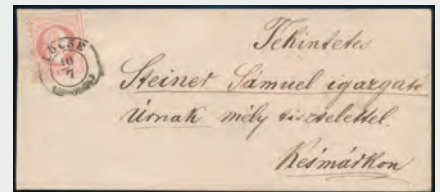 LŐCSE
10
7
Tekintetes
Steiner Sámuel igazgató
Úrnak mély tisztelettel.
Késmárkon